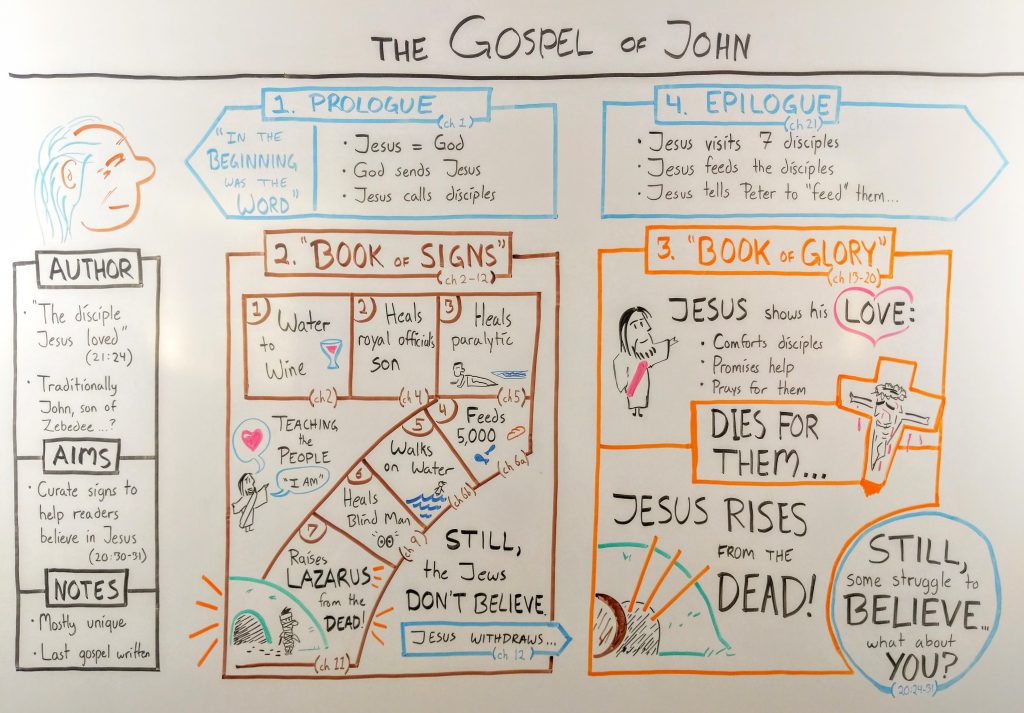 THE GOSPEL OF JOHN
1. PROLOGUE
(ch 1)
"IN THE
BEGINNING
WAS THE
WORD"
• Jesus = God
• God sends Jesus
• Jesus calls disciples
4. EPILOGUE
(ch 21)
• Jesus visits 7 disciples
• Jesus feeds the disciples
• Jesus tells Peter to "feed" them...
AUTHOR
• "The disciple
Jesus loved"
(21:24)
• Traditionally
John, son of
Zebedee...?
AIMS
• Curate signs to
help readers
believe in Jesus
(20:30-31)
NOTES
• Mostly unique
• Last gospel written
2. "BOOK OF SIGNS"
(ch 2-12)
1
Water
to
Wine
(ch2)
2
Heals
royal officials
son
(ch 4)
3
Heals
paralytic
(ch5)
4
Feeds
5,000
(ch. 6a)
5
Walks
on Water
(ch 6b)
6
Heals
Blind Man
(ch. 9)
7
Raises
LAZARUS
from the
DEAD!
(ch 11)
TEACHING
the
PEOPLE
"I AM"
STILL,
the Jews
DON'T BELIEVE.
JESUS WITHDRAWS...
(ch 12)
3. "BOOK OF GLORY"
(ch 13-20)
JESUS shows his LOVE:
• Comforts disciples
• Promises help
• Prays for them
DIES FOR
THEM...
JESUS RISES
FROM THE
DEAD!
STILL,
some struggle to
BELIEVE...
what about
YOU?
(20:24-31)